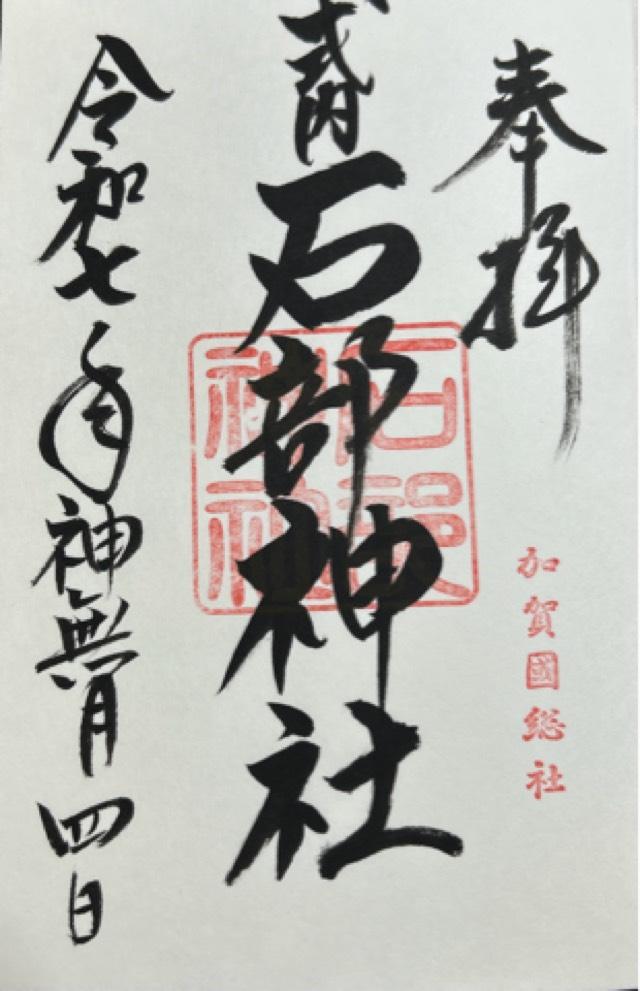 奉拝
加賀國総社
式内
石部神社
石部神社
令和七年神無月四日